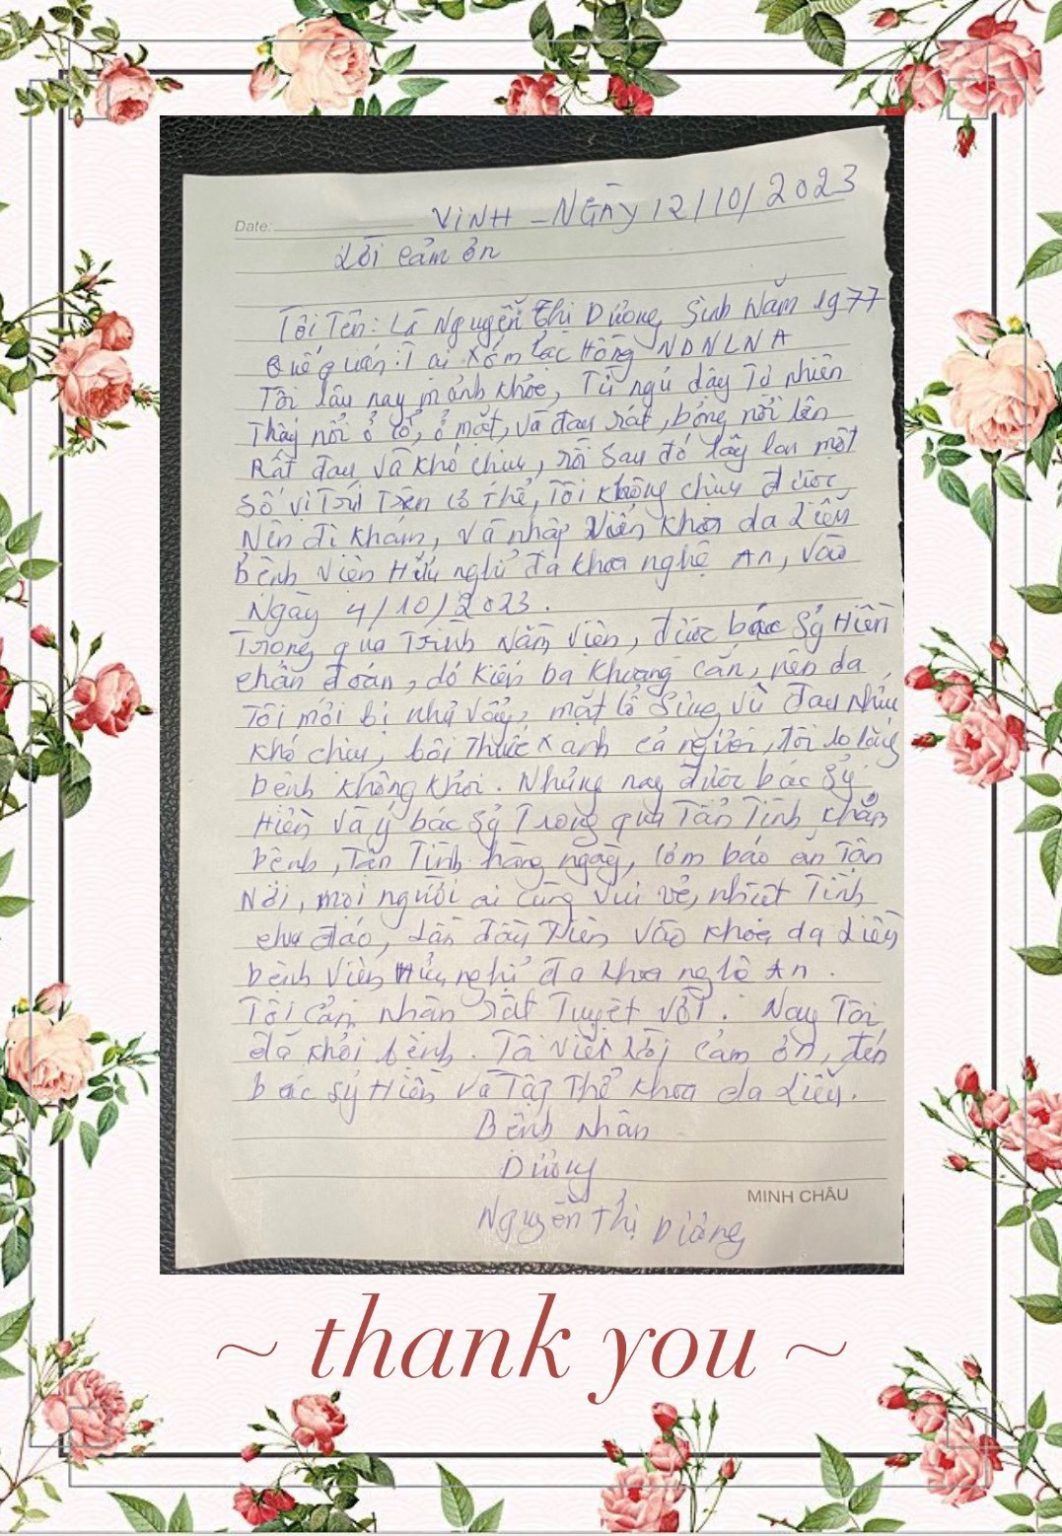 Date:
VINH - NGÀY 12/10/2023
Lời cảm ơn
Tôi Tên: Là Nguyễn Thị Dương, Sinh Năm 1977
Quê quán: Tại Xóm Lạc Hồng NDNLNA
Tôi lâu nay mạnh khỏe, Từ ngủ dậy Tự nhiên
Thấy nổi ở cổ, ở mặt, và đau rát, bỏng nổi lên
Rất đau và khó chịu, rồi Sau đó lây lan một
Số vị Trí Trên cơ thể, Tôi không chịu được
Nên đi khám, và nhập Viện khoa da Liễu
Bệnh Viện Hữu nghị đa khoa nghệ An, vào
Ngày 4/10/2023.
Trong quá Trình Nằm viện, được bác Sỹ Hiền
chẩn đoán, do kiến ba khoang cắn, nên da
Tôi mới bị như vậy, mặt cổ Sưng vù đau nhức
khó chịu, bôi Thuốc xanh cả người, tôi lo lắng
bệnh không khỏi. Nhưng nay được bác Sỹ
Hiền và y bác Sỹ Trong qua Tận Tình khám
bệnh, Tận Tình hàng ngày, cơm báo ăn Tận
Nơi, mọi người ai cũng vui vẻ, nhiệt Tình
chu đáo, Lần đầu Tiên vào khoa da Liễu
bệnh viện Hữu nghị đa khoa nghệ An.
Tôi cảm nhận rất Tuyệt vời. Nay Tôi
đã khỏi bệnh. Tôi viết lời cảm ơn, đến
bác Sỹ Hiền và Tập Thể khoa da Liễu.
Bệnh nhân
Dương
Nguyễn Thị Dương
MINH CHÂU
~ thank you ~